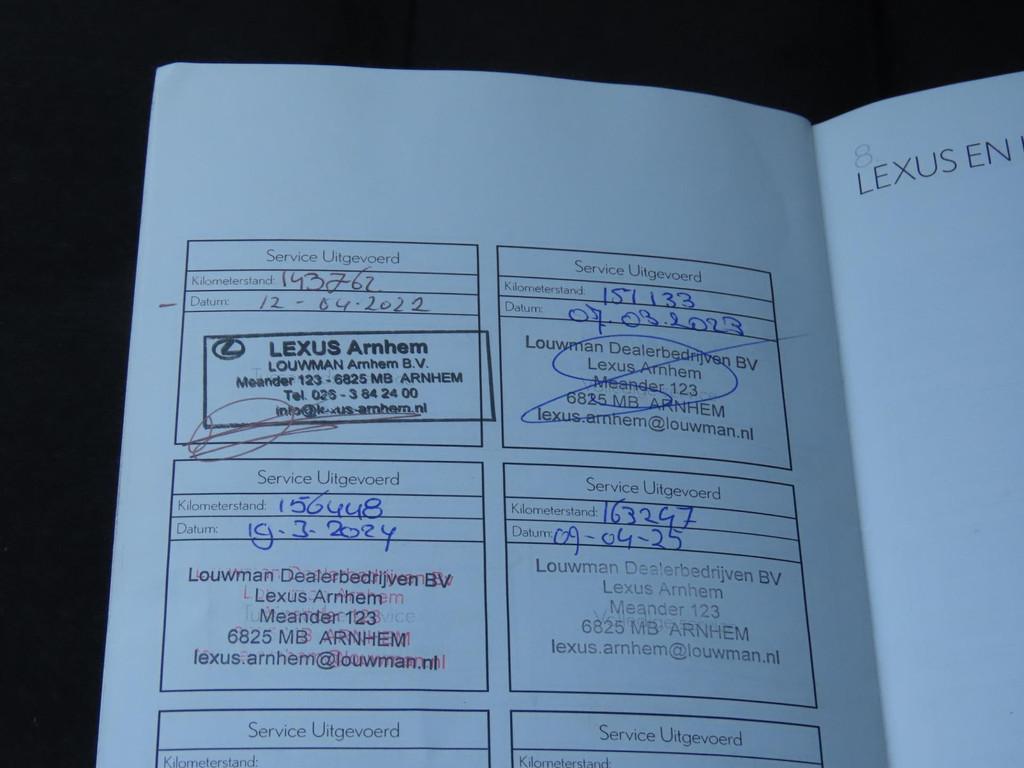 Service Uitgevoerd
Kilometerstand: 143762
Datum: 12-04-2022
LEXUS Arnhem
LOUWMAN Arnhem B.V.
Meander 123 - 6825 MB ARNHEM
Tel. 026 - 3 84 24 00
info@lexus-arnhem.nl
Service Uitgevoerd
Kilometerstand: 151133
Datum: 07-03-2023
Louwman Dealerbedrijven BV
Lexus Arnhem
Meander 123
6825 MB ARNHEM
lexus.arnhem@louwman.nl
Service Uitgevoerd
Kilometerstand: 156448
Datum: 19-3-2024
Louwman Dealerbedrijven BV
Lexus Arnhem
Meander 123
6825 MB ARNHEM
lexus.arnhem@louwman.nl
Service Uitgevoerd
Kilometerstand: 163247
Datum: 09-04-25
Louwman Dealerbedrijven BV
Lexus Arnhem
Meander 123
6825 MB ARNHEM
lexus.arnhem@louwman.nl
Service Uitgevoerd
Kilometerstand:
Service Uitgevoerd
Kilometerstand:
8.
LEXUS EN